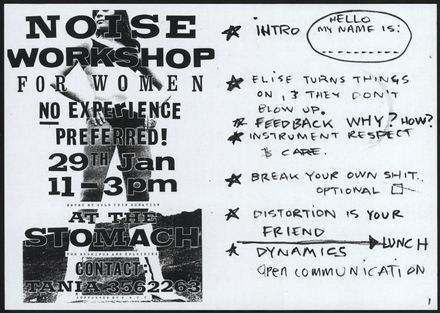 NOISE
WORKSHOP
FOR WOMEN
NO EXPERIENCE
PREFERRED!
29TH Jan
11-3pm
ENTRY BY GOLD COIN DONATION
AT THE
STOMACH
FOR BOOKINGS AND ENQUIRIES
CONTACT:
TANIA 3562263
INTRO
HELLO
MY NAME IS:
ELISE TURNS THINGS
ON, & THEY DON'T
BLOW UP.
FEEDBACK WHY? HOW?
INSTRUMENT RESPECT
& CARE.
BREAK YOUR OWN SHIT..
OPTIONAL
DISTORTION IS YOUR
FRIEND
LUNCH
DYNAMICS
OPEN COMMUNICATION
1